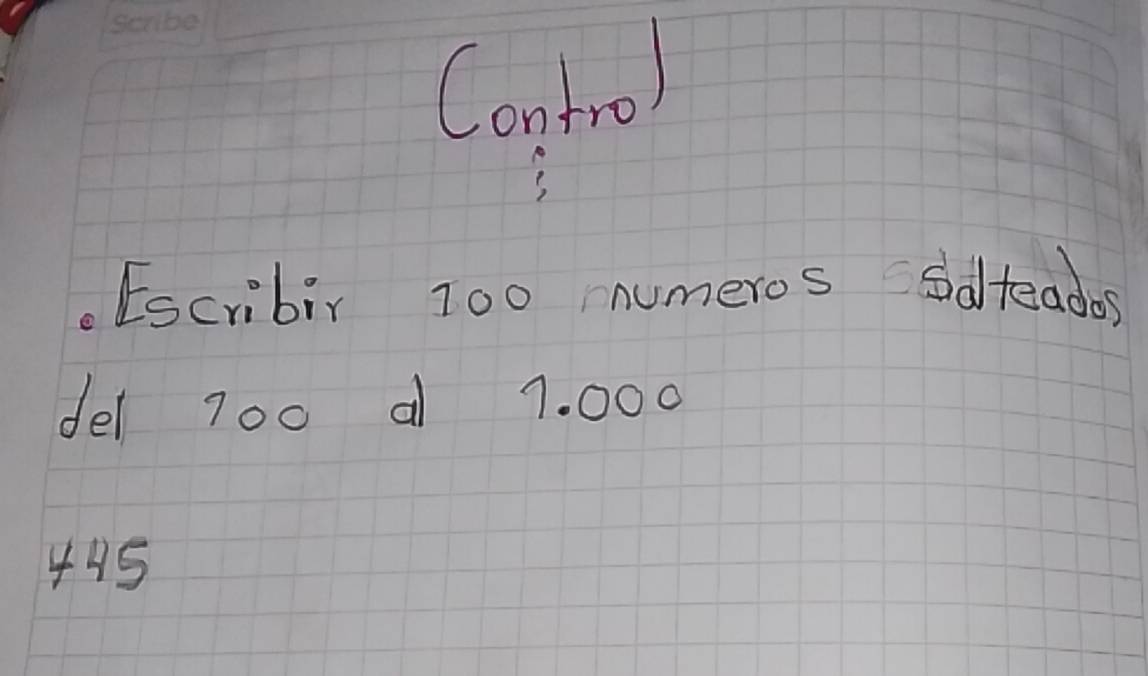 Scribe
Control
:
. Escribir 100 numeros salteados
del 100 al 1.000
445